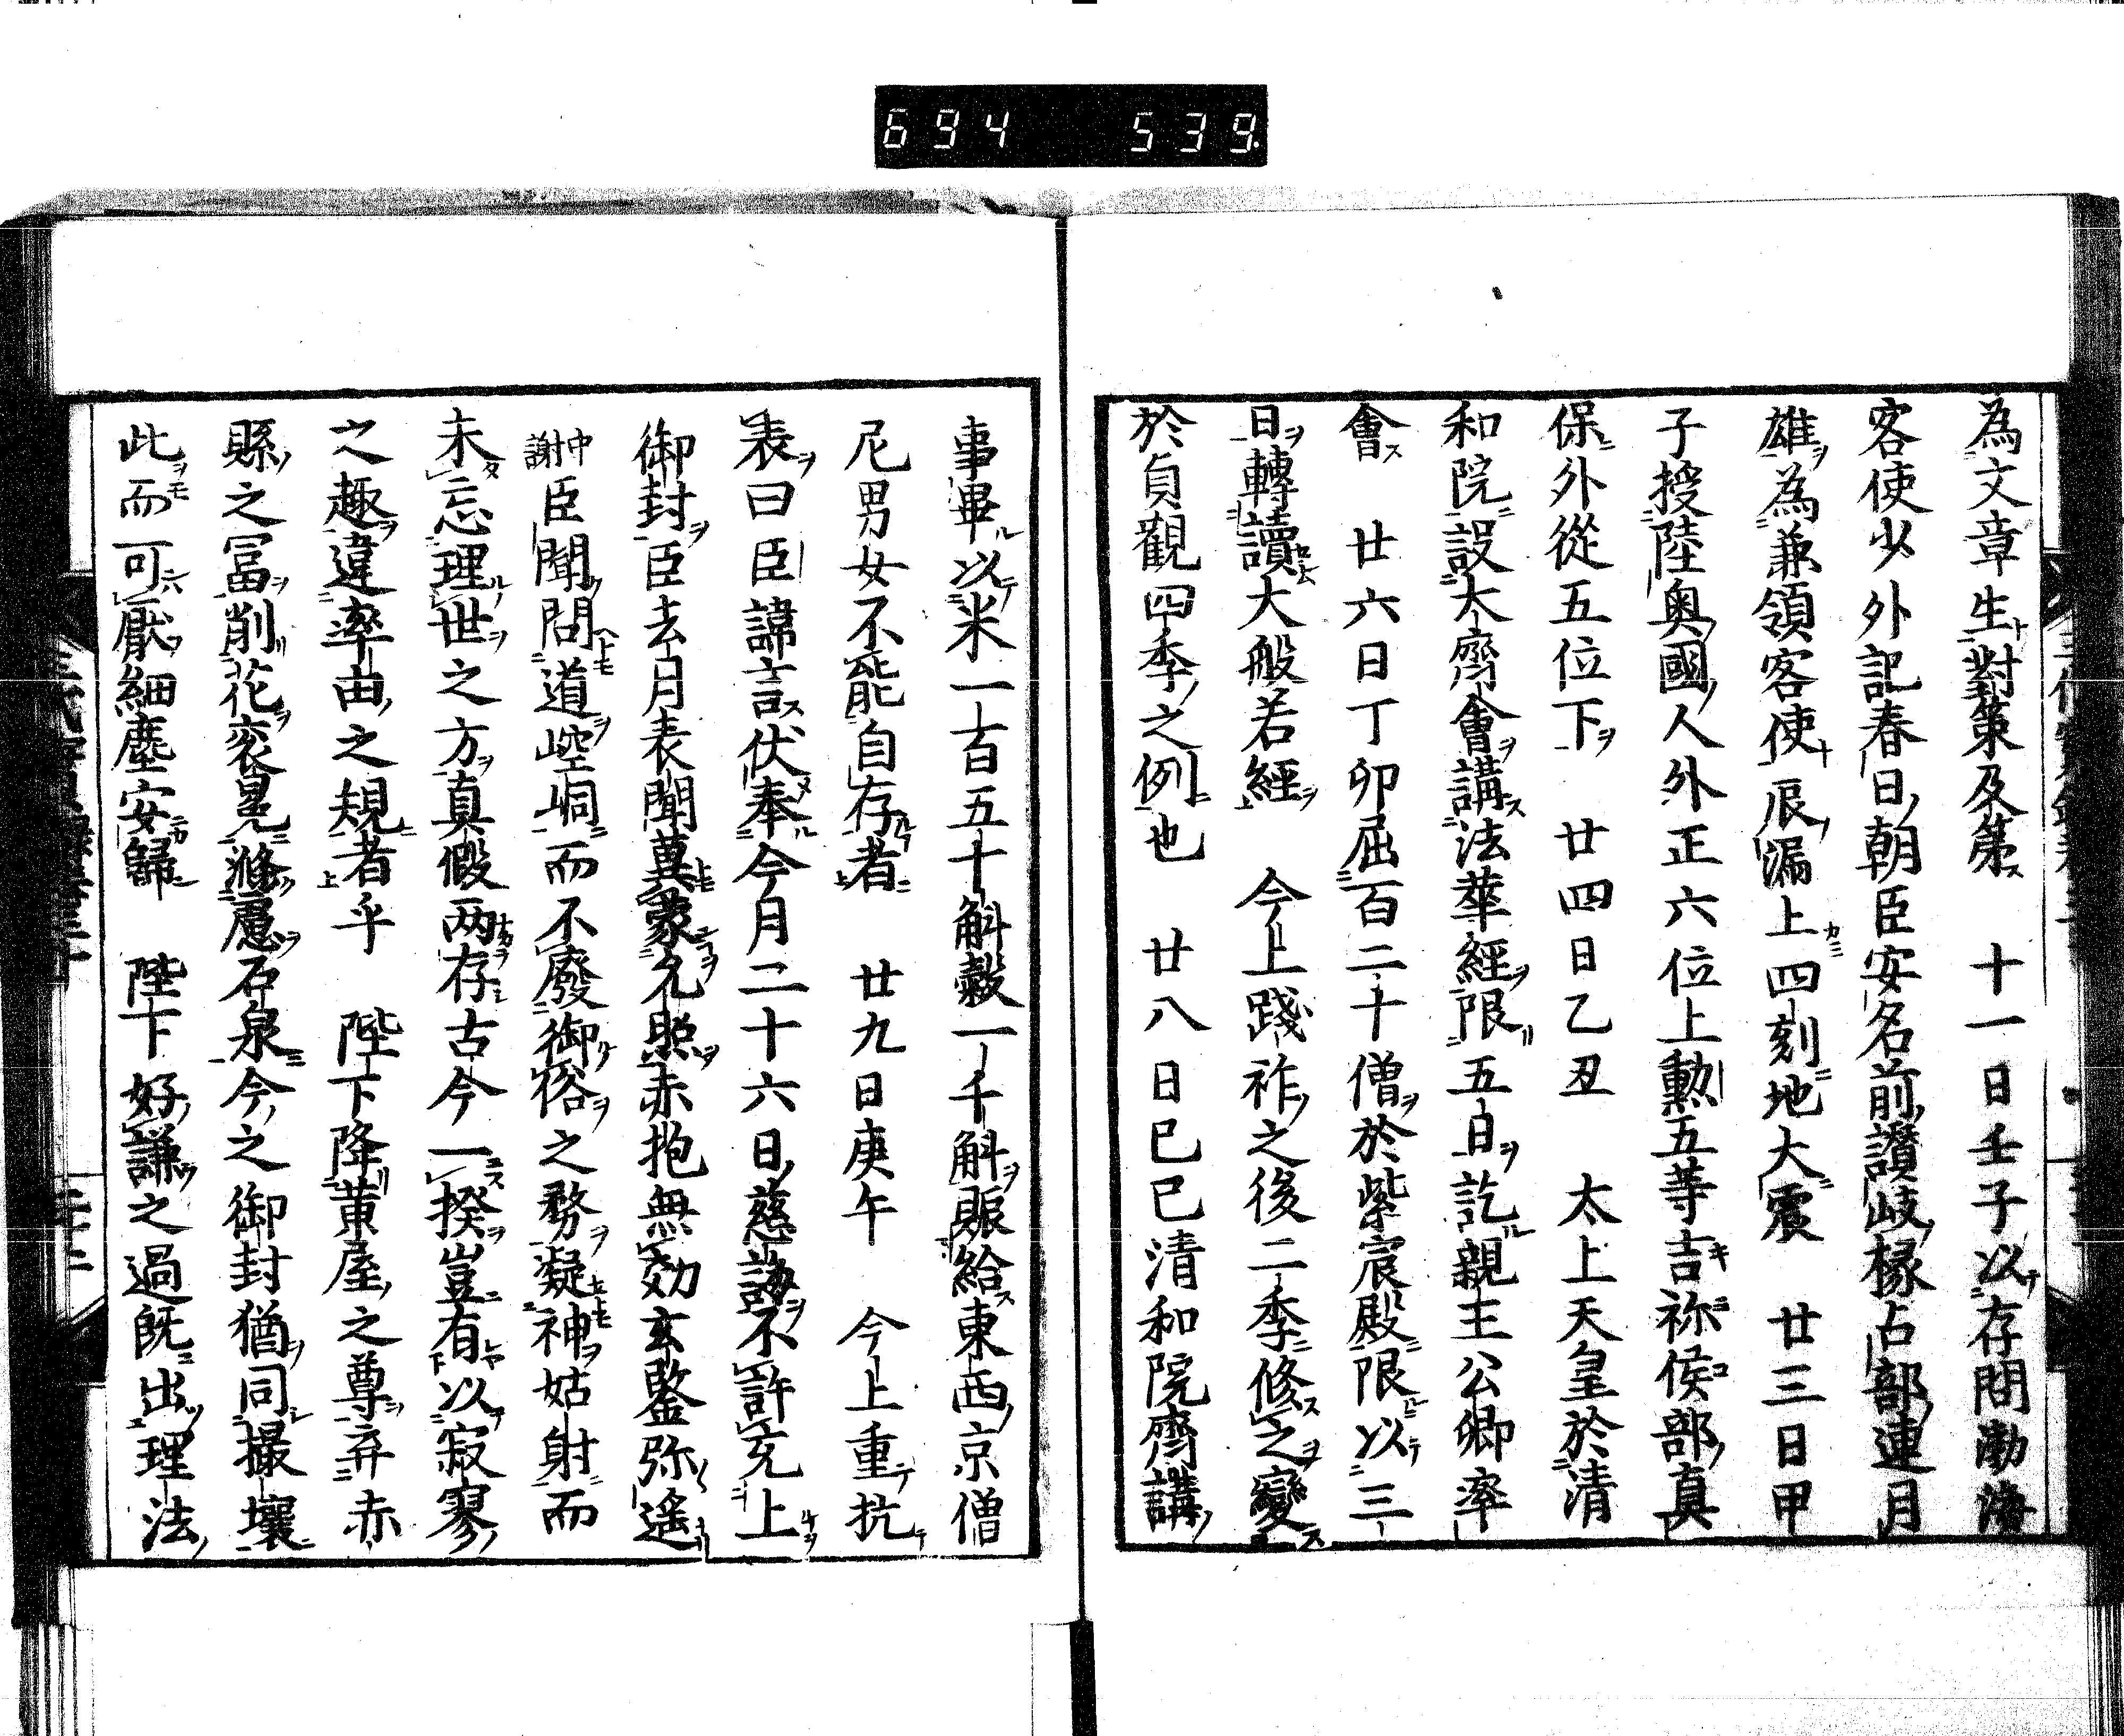 694 539
為文章生對策及第 十一日壬子以存問渤海
客使少外記春日朝臣安名前讃岐掾占部連月
雄為兼領客使辰漏上四刻地大震 廿三日甲
子授陸奥國人外正六位上勳五等吉弥侯部真
保外從五位下 廿四日乙丑 太上天皇於清
和院設大齋會講法華經限五日訖親王公卿率
會 廿六日丁卯屈百二十僧於紫宸殿限以三
日轉讀大般若經 今上踐祚之後二季修之變
於貞觀四季之例也 廿八日己巳清和院齋講
事畢以米一百五十斛穀一千斛賑給東西京僧
尼男女不能自存者 廿九日庚午 今上重抗
表曰臣諱言伏奉今月二十六日慈誥不許充上
御封臣去月表聞冀蒙允照赤抱無効玄鑒弥遙
中謝臣聞問道崆峒而不廢御俗之務凝神姑射而
未忘理世之方真假两存古今一揆豈有以寂寥
之趣違率由之規者乎 陛下降黄屋之尊弃赤
縣之冨削花衮冕滌慮石泉今之御封猶同撮壤
此而可厭細塵安歸 陛下好謙之過既出理法